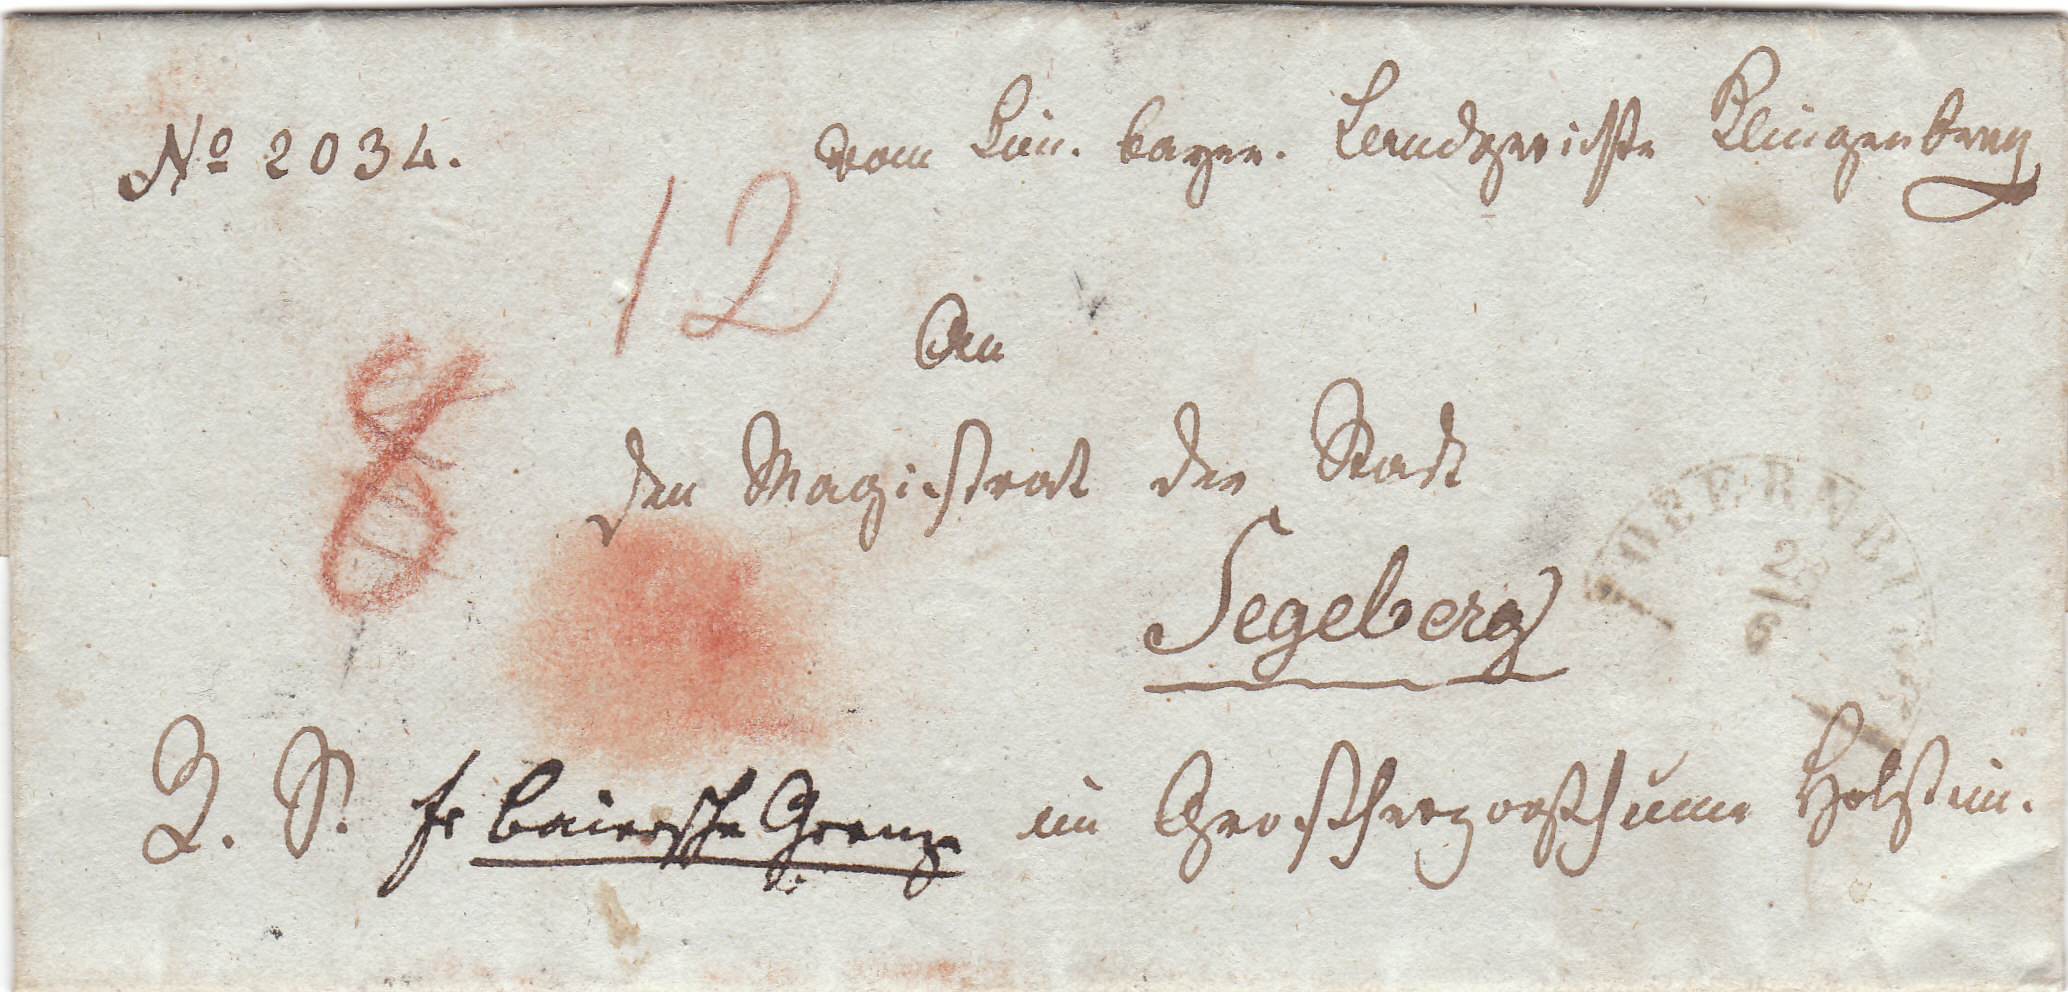 No 2034.
vom Kön. bayer. Landgerichte Klingenberg
12
An
8
den Magistrat der Stadt
Segeberg
2
6
P. S. fr baiersche Grenze im Grossherzogthume Holstein.